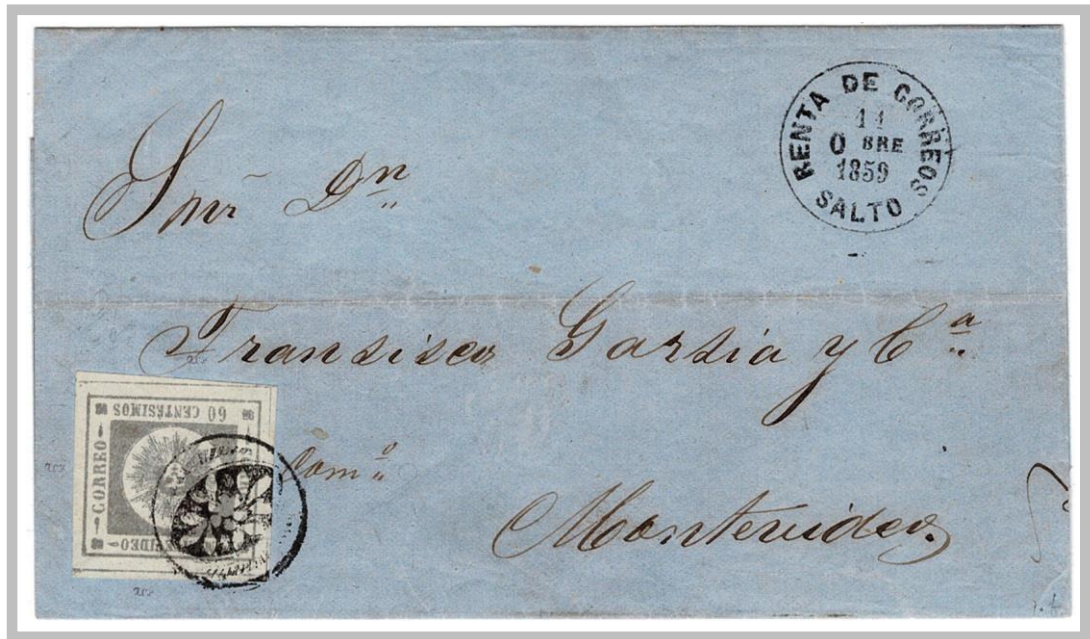 RENTA DE CORREOS
11
OBRE
1859
SALTO
Snr Dn
Fransisco Garsia y Ca
Como
Montevideo.
60 CENTÉSIMOS
CORREO